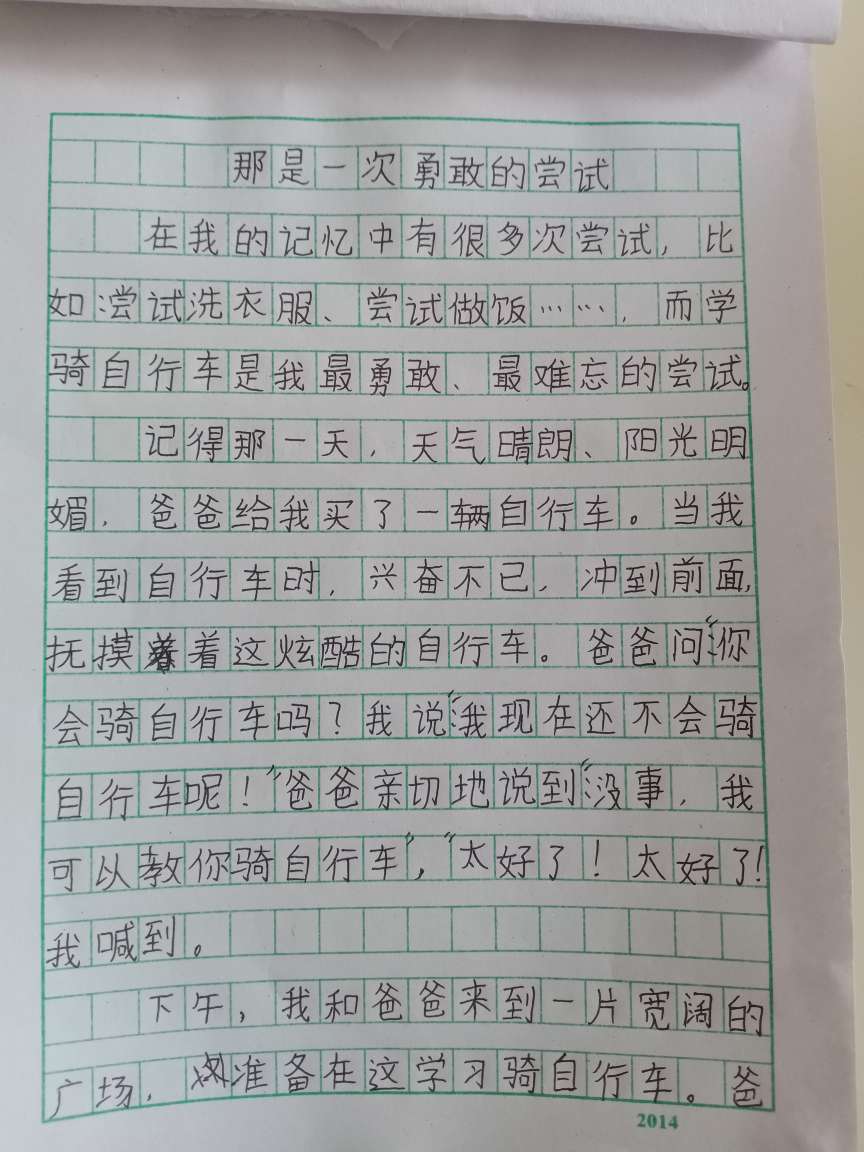 那是一次勇敢的尝试
在我的记忆中有很多次尝试，比
如:尝试洗衣服、尝试做饭……，而学
骑自行车是我最勇敢、最难忘的尝试。
记得那一天，天气晴朗、阳光明
媚，爸爸给我买了一辆自行车。当我
看到自行车时，兴奋不已，冲到前面，
抚摸着这炫酷的自行车。爸爸问:“你
会骑自行车吗？我说:“我现在还不会骑
自行车呢！”爸爸亲切地说到:“没事，我
可以教你骑自行车”，“太好了！太好了！
我喊到。
下午，我和爸爸来到一片宽阔的
广场，准备在这学习骑自行车。爸
2014